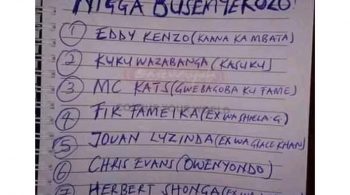 NIGGA BUSENYEKOZO
1 EDDY KENZO (KAANA KA MBATA)
2 KUKUWAZABANGA (KASUKU)
3 MC KATS (GWEBAGOBA KU FAME)
4 FIK FAMEIKA (EX WA SHEILA G)
5 JOVAN LUZINDA (EX WA GRACE KHAN)
6 CHRIS EVANS (OWENYONDO)
7 HERBERT SHONGA (EX WA